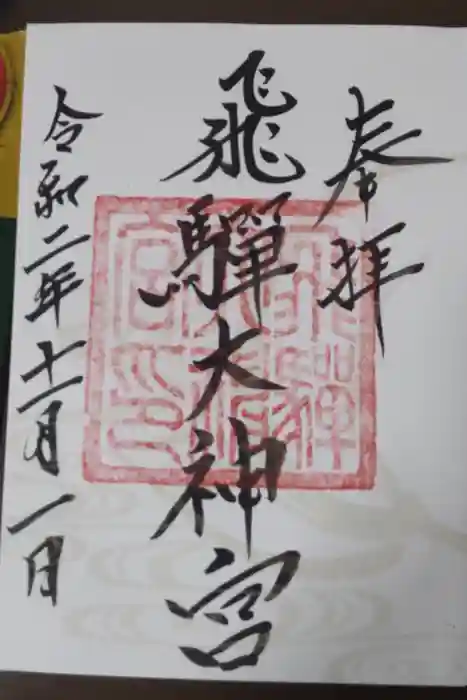 奉拝
飛驒大神宮
令和二年十一月一日